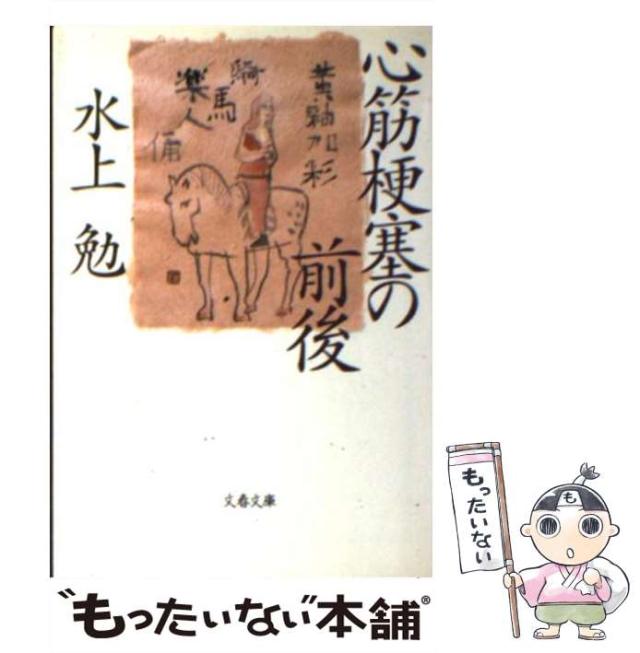 心筋梗塞の
前後
水上 勉
黄釉加彩
騎馬
楽人
俑
文春文庫
もったいない
も
"もったいない"本舗®